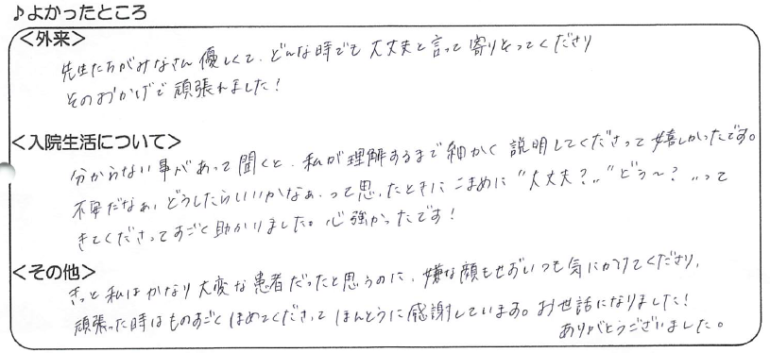 ♪よかったところ
<外来>
先生たちがみなさん優しくて、どんな時でも大丈夫と言って寄りそってくださり
そのおかげで頑張れました！
<入院生活について>
分からない事があって聞くと、私が理解するまで細かく説明してくださって嬉しかったです。
不安だなぁ、どうしたらいいかなぁ、って思ったときにこまめに"大丈夫？" "どう～？"って
きてくださってすごく助かりました。心強かったです！
<その他>
きっと私はかなり大変な患者だったと思うのに、嫌な顔もせずいつも気にかけてくださり、
頑張った時はものすごくほめてくださってほんとうに感謝しています。お世話になりました！
ありがとうございました。